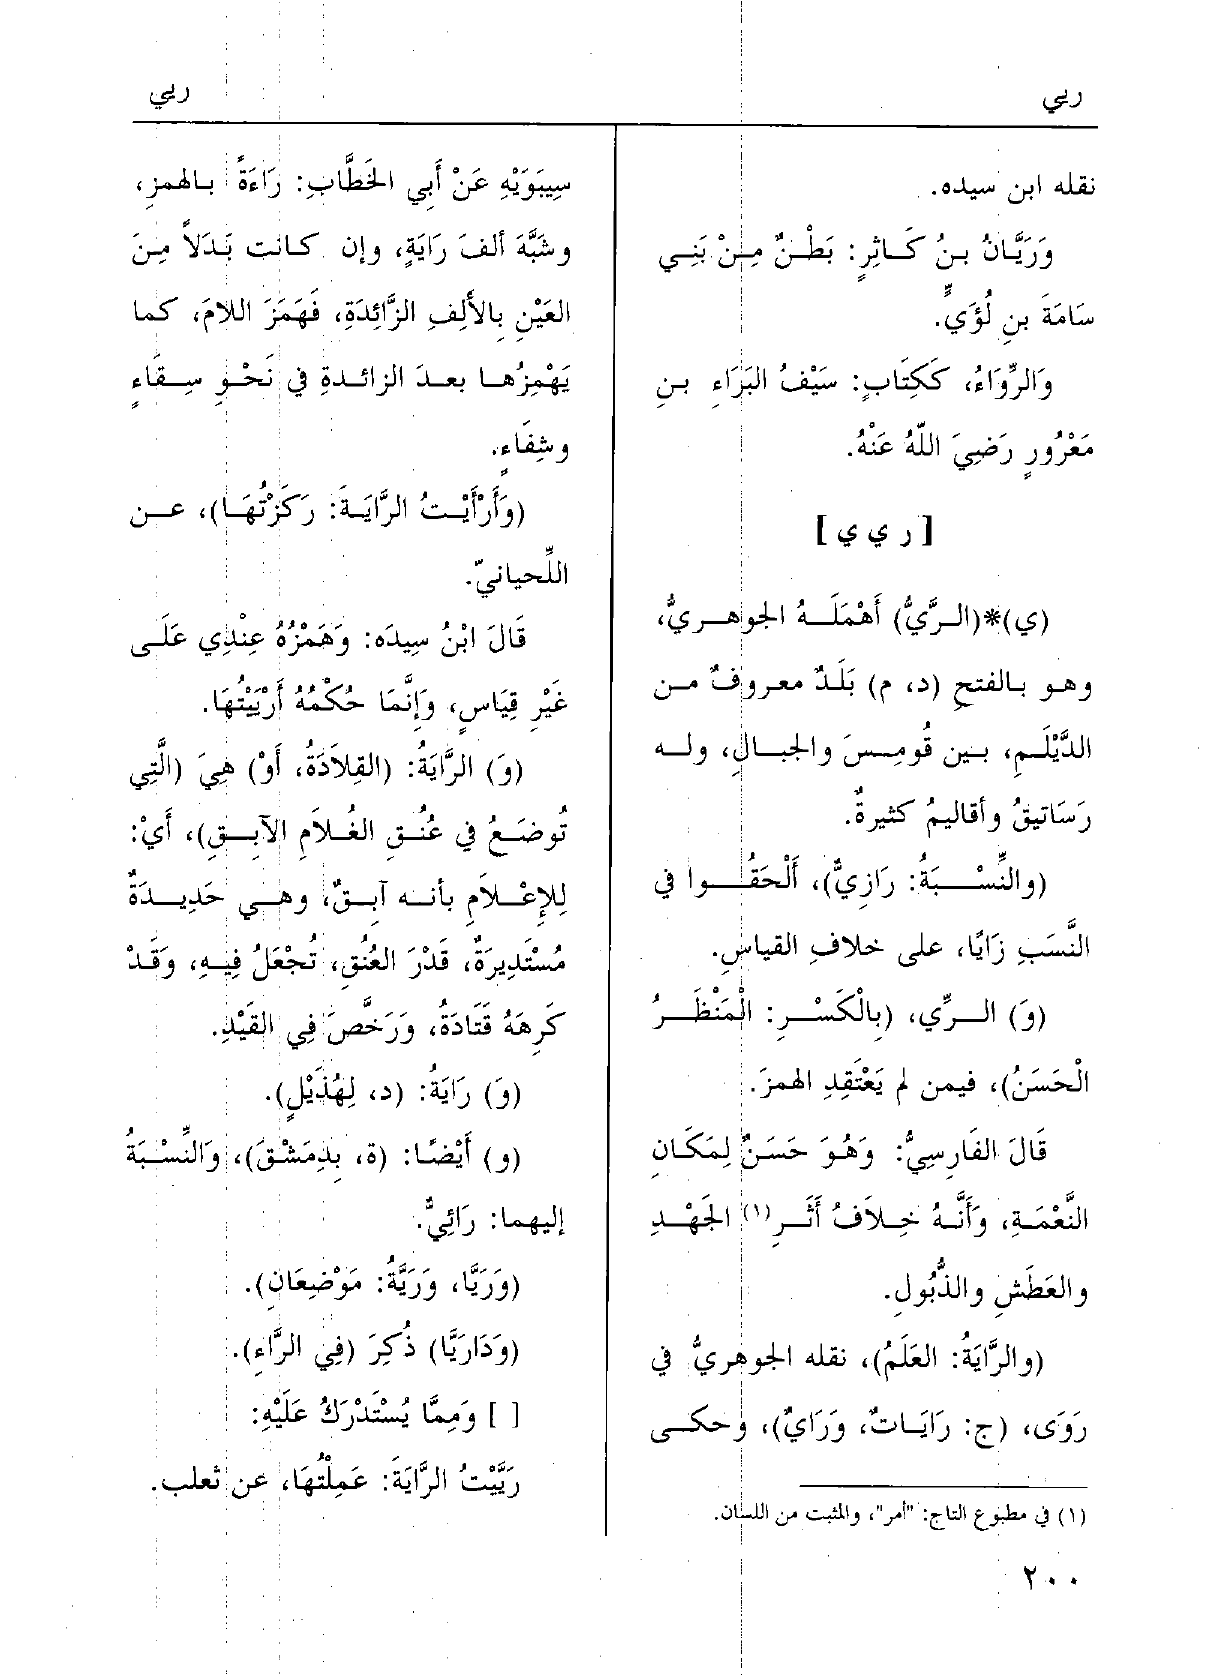 ريي
ريي
نقله ابن سيده.
وَرَيَّانُ بنُ كَاثِرٍ: بَطْنٌ مِنْ بَنِي
سَامَةَ بنِ لُؤَيٍّ.
وَالرِّوَاءُ، ككِتَابٍ: سَيْفُ البَرَاءِ بنِ
مَعْرُورٍ رَضِيَ اللَّهُ عَنْهُ.
[ر ي ي]
(ي)*(الرَّيُّ) أَهْمَلَهُ الجوهريُّ،
وهو بالفتحِ (د، م) بَلَدٌ معروفٌ من
الدَّيْلَمِ، بين قُومِسَ والجبالِ، وله
رَسَاتيقُ وأقاليمُ كثيرةٌ.
(والنِّسْبَةُ: رَازِيٌّ)، أَلْحَقُوا في
النَّسَبِ زَايًا، على خلافِ القياسِ.
(وَ) الرِّي، (بِالْكَسْرِ: الْمَنْظَرُ
الْحَسَنُ)، فيمن لم يَعْتَقِدِ الهمزَ.
قَالَ الفَارسِيُّ: وَهُوَ حَسَنٌ لِمَكَانِ
النَّعْمَةِ، وَأَنَّهُ خِلاَفُ أَثَرِ(١) الجَهْدِ
والعَطَشِ والذُّبُولِ.
(والرَّايَةُ: العَلَمُ)، نقله الجوهريُّ في
رَوَى، (ج: رَايَاتٌ، وَرَايٌ)، وحكى
(١) في مطبوع التاج: "أمر"، والمثبت من اللسان.
٢٠٠
سِيبَوَيْهِ عَنْ أَبي الخَطَّابِ: رَاءَةً بالهمزِ،
وشَبَّهَ ألفَ رَايَةٍ، وإن كانت بَدَلاً مِنَ
العَيْنِ بِالأَلِفِ الزَّائِدَةِ، فَهَمَزَ اللامَ، كما
يَهْمِزُها بعدَ الزائدةِ في نَحْوِ سِقَاءٍ
وشِفَاءٍ.
(وَأَرْأَيْتُ الرَّايَةَ: رَكَزْتُهَا)، عن
اللِّحيانيّ.
قَالَ ابْنُ سِيدَه: وَهَمْزُهُ عِنْدِي عَلَى
غَيْرِ قِيَاسٍ، وَإِنَّمَا حُكْمُهُ أَرْيَيْتُهَا.
(وَ) الرَّايَةُ: (القِلاَدَةُ، أَوْ) هِيَ (الَّتِي
تُوضَعُ في عُنُقِ الغُلاَمِ الآبِقِ)، أَيْ:
لِلإِعْلاَمِ بأنه آبِقٌ، وهي حَدِيدَةٌ
مُسْتَدِيرَةٌ، قَدْرَ العُنُقِ، تُجْعَلُ فِيهِ، وَقَدْ
كَرِهَهُ قَتَادَةُ، وَرَخَّصَ فِي القَيْدِ.
(وَ) رَايَةُ: (د، لِهُذَيْلٍ).
(و) أَيْضًا: (ة، بِدِمَشْقَ)، وَالنِّسْبَةُ
إليهما: رَائِيٌّ.
(وَرَيَّا، وَرَيَّةُ: مَوْضِعَانِ).
(وَدَارَيَّا) ذُكِرَ (فِي الرَّاءِ).
[ ] وَمِمَّا يُسْتَدْرَكُ عَلَيْهِ:
رَيَّيْتُ الرَّايَةَ: عَمِلْتُهَا، عن ثعلب.